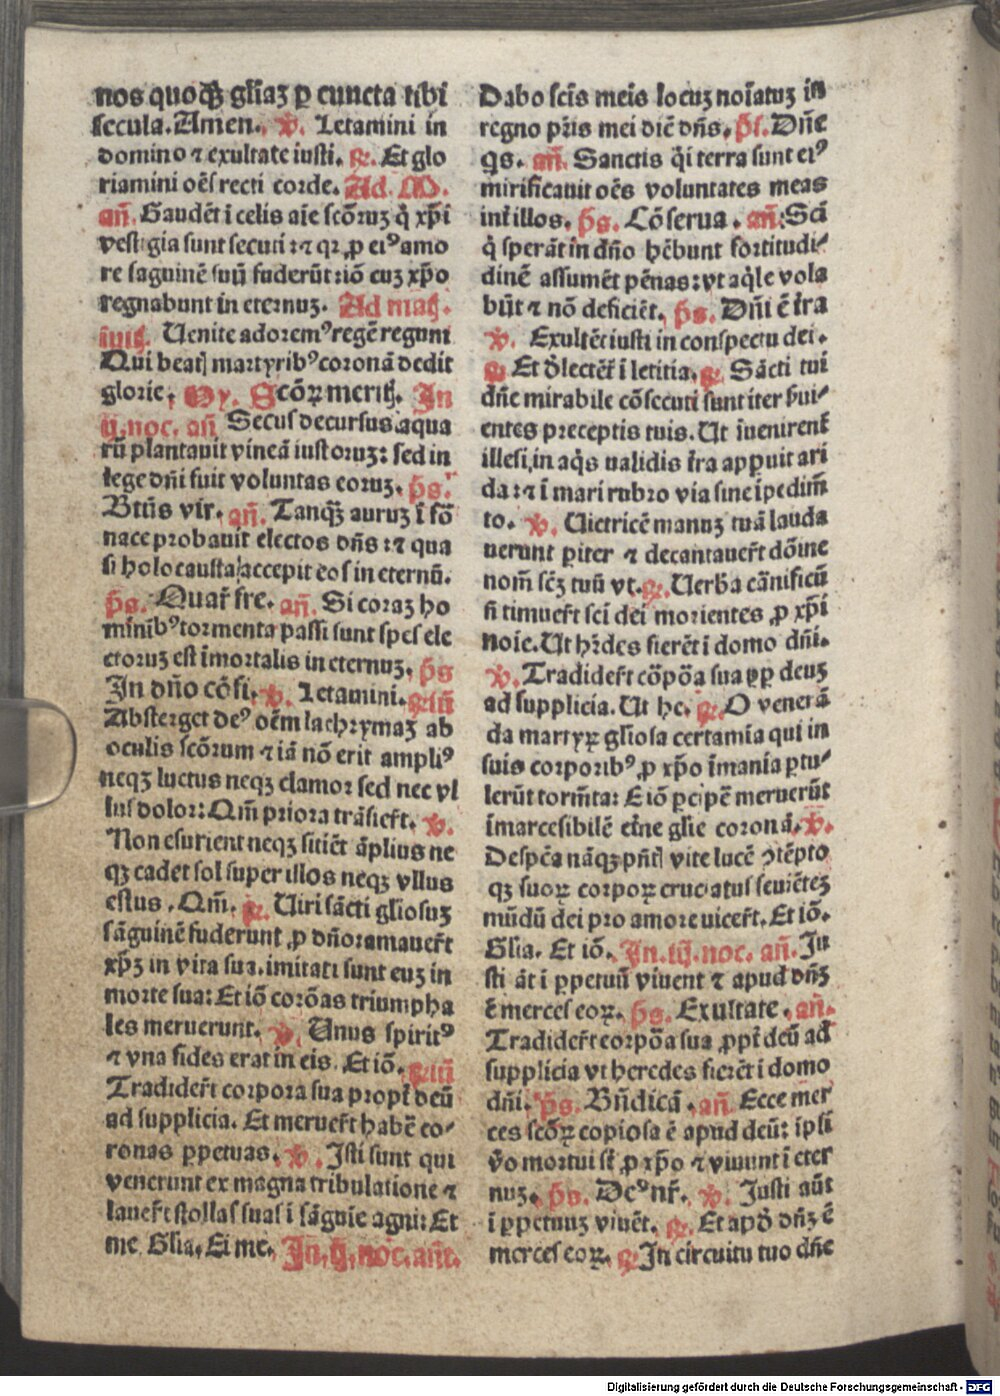 nos quoqꝫ gl̄iaꝫ ꝑ cuncta tibi
secula. Amen. ꝟ. Letamini in
domino ⁊ exultate iusti. ꝶ. Et glo
riamini oēs recti corde. Ad. M.
an̄. Gaudēt ī celis aīe scōruꝫ q̄ xp̄i
vestigia sunt secuti :⁊ qꝛ ꝓ eiꝰ amo
re sāguinē suū fuderūt : iō cuꝫ xp̄o
regnabunt in eternuꝫ. Ad mat̄
iut̄. Uenite adoremꝰ regē regum
Qui beatꝭ martyribꝰ coronā dedit
glorie. Hy. Scōꝝ meritꝭ. In
ij. noc. an̄ Secus decursus aqua
rū plantauit vineā iustoruꝫ: sed in
lege dn̄i fuit voluntas eoruꝫ. p̄s.
Btūs vir. an̄. Tanqꝫ auruꝫ ī fō
nace probauit electos dn̄s :⁊ qua
si holocausta accepit eos in eternū.
p̄s. Quar̄ fre. an̄. Si coraꝫ ho
mīnibꝰ tormenta passi sunt spes ele
ctoruꝫ est īmortalis in eternuꝫ. p̄s
In dn̄o cōfi. ꝟ. Letamini. ꝶiū
Absterget deꝰ oēm lachrymaꝫ ab
oculis scōrum ⁊ iā nō erit ampliꝰ
neqꝫ luctus neqꝫ clamor sed nec vl
lus dolor: Qm̄ priora trāsier̄t. ꝟ.
Non esurient neqꝫ sitiēt āplius ne
qꝫ cadet sol super illos neqꝫ vllus
estus. Qm̄. ꝶ. Uiri sācti gliosuꝫ
sāguinē fuderunt ꝓ dn̄o: amauer̄t
xp̄ꝫ in vita sua. imitati sunt euꝫ in
morte sua: Et iō corōas triumpha
les meruerunt. ꝟ. Unus spiritꝰ
⁊ vna fides erat in eis. Et iō. ꝶiū
Tradider̄t corpora sua propt̄ deū
ad supplicia. Et meruer̄t habē co⸗
ronas ꝑpetuas. ꝟ. Isti sunt qui
venerunt ex magna tribulatione ⁊
lauer̄t stollas suas ī sāguīe agni: Et
me. Glia. Et me. In. ij. noc. ant̄.
Dabo scīs meis locuꝫ noīatuꝫ in
regno pr̄is mei dicē dn̄s. p̄s. Dn̄e
qs. an̄. Sanctis q̄i terra sunt eiꝰ
mirificauit oēs voluntates meas
int̄ illos. p̄s. Cōserua. an̄. Scī
q̄ sperāt in dn̄o hēbunt fortitudi⸗
dinē assumēt pēnas: vt aq̄le vola
būt ⁊ nō deficiēt. p̄s. Dn̄i ē t̄ra
ꝟ. Exultēt iusti in conspectu dei.
ꝶ. Et d̄lectēt̄ ī letitia. ꝶ. Sācti tui
dn̄e mirabile cōsecuti sunt iter ẜui⸗
entes preceptis tuis. Ut īuenirent̄
illesi in aq̄s ualidis t̄ra apparuit ari
da :⁊ ī mari rubro via sine īpedim̄
to. ꝟ. Uictricē manuꝫ tuā lauda
uerunt pariter ⁊ decantauer̄t dōine
nom̄ scꝫ tuū vt. ꝶ. Uerba cānificū
n̄ timuer̄t scī dei morientes ꝓ xp̄i
noīe. Ut hr̄des fierēt ī domo dn̄i.
ꝟ. Tradider̄t cōpōa sua ꝓp deuꝫ
ad supplicia. Ut he. ꝶ. O venerā
da martyꝝ gliosa certamīa qui in
suis corporibꝰ ꝓ xp̄o īmania ꝑtu⸗
lerūt torm̄ta: E iō ꝑcipē meruerūt
īmarcesibilē et̄ne glie coronā. ꝟ.
Despēa nāqꝫ pn̄tꝭ vite lucē ꝯtēpto
qꝫ suoꝝ corpoꝝ cruciatus seuiētēꝫ
mūdū dei pro amore uicer̄t. Et iō.
Glia. Et iō. In. iij. noc. an̄. Iu
sti āt ī ꝑpetuū viuent ⁊ apud dn̄ꝫ
ē merces eoꝝ. p̄s. Exultate. an̄.
Tradider̄t corpōa sua ꝓpt̄ deū ad
supplicia vt heredes fierēt ī domo
dn̄i. p̄s. Bn̄dicā. an̄. Ecce mer
ces scōꝝ copiosa ē apud deū: ipsi
v̄o mortui st̄ ꝓ xp̄o ⁊ viuunt ī eter
nuꝫ. p̄s. Deꝰ nr̄. ꝟ. Iusti aūt
ī ꝑpetuuꝫ viuēt. ꝶ. Et apd̄ dn̄ꝫ ē
merces eoꝝ. ꝶ. In circuitu tuo dn̄e
Digitalisierung gefördert durch die Deutsche Forschungsgemeinschaft - DFG